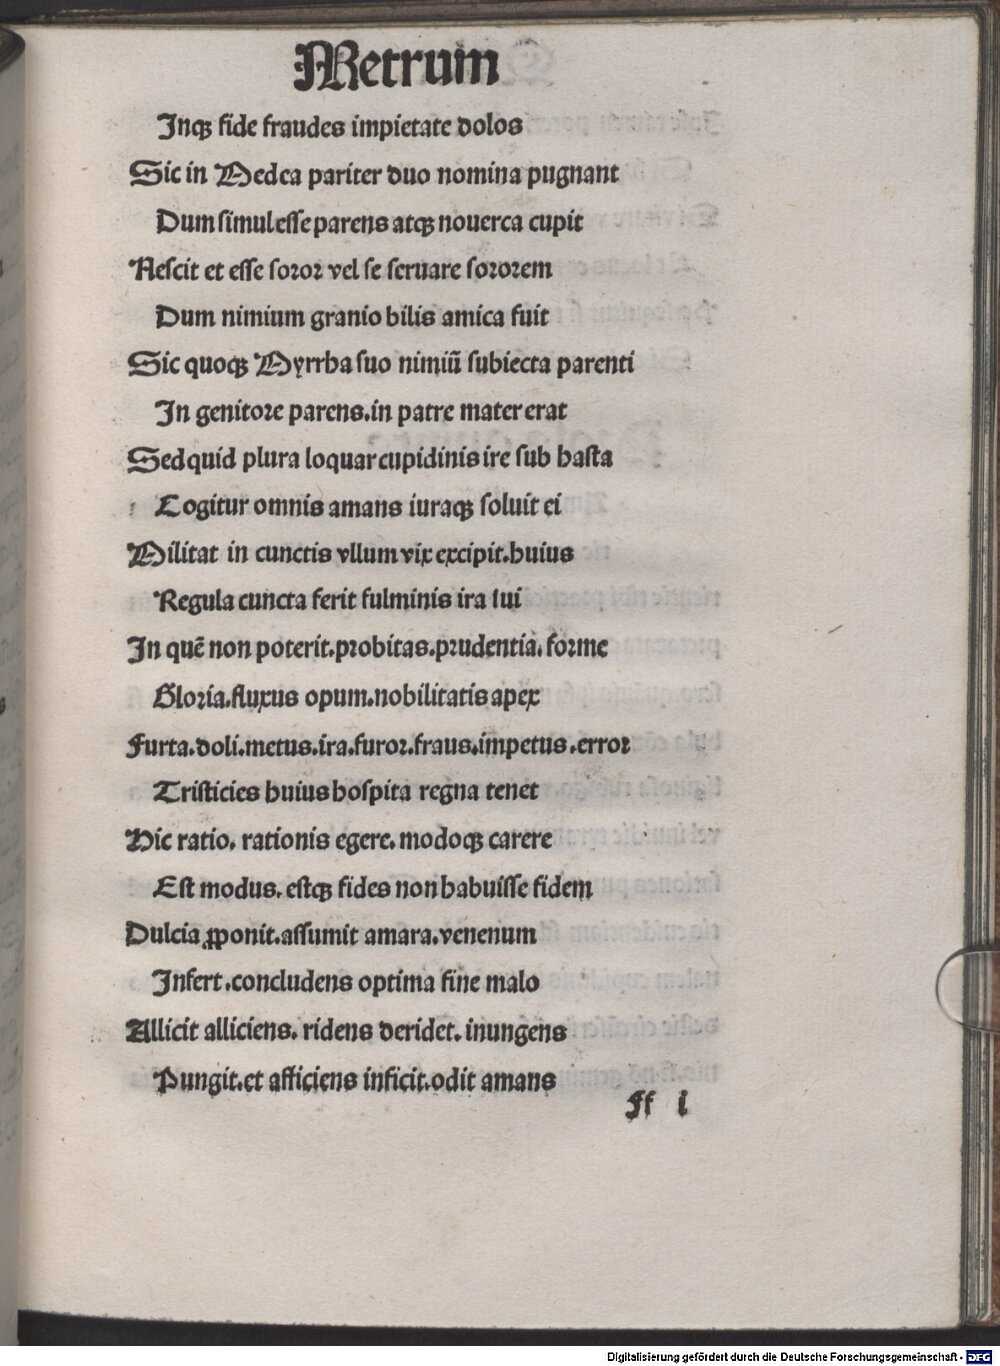 Metrum
Inqꝫ fide fraudes impietate dolos
Sic in Medea pariter duo nomina pugnant
Dum simul esse parens atqꝫ nouerca cupit
Nescit et esse soror vel se seruare sororem
Dum nimium granio bilis amica fuit
Sic quoqꝫ Myrrha suo nimiũ subiecta parenti
In genitore parens.in patre mater erat
Sed quid plura loquar cupidinis ire sub hasta
Cogitur omnis amans iuraqꝫ soluit ei
Militat in cunctis vllum vix excipit.huius
Regula cuncta ferit fulminis ira sui
In quẽ non poterit.probitas.prudentia.forme
Gloria.fluxus opum.nobilitatis apex
Furta.doli.metus.ira.furor.fraus.impetus.error
Tristicies huius hospita regna tenet
Hic ratio. rationis egere. modoqꝫ carere
Est modus. estqꝫ fides non habuisse fidem
Dulcia ꝓponit.assumit amara.venenum
Infert.concludens optima fine malo
Allicit alliciens. ridens deridet. inungens
Pungit.et afficiens inficit.odit amans
ff i
Digitalisierung gefördert durch die Deutsche Forschungsgemeinschaft - DFG